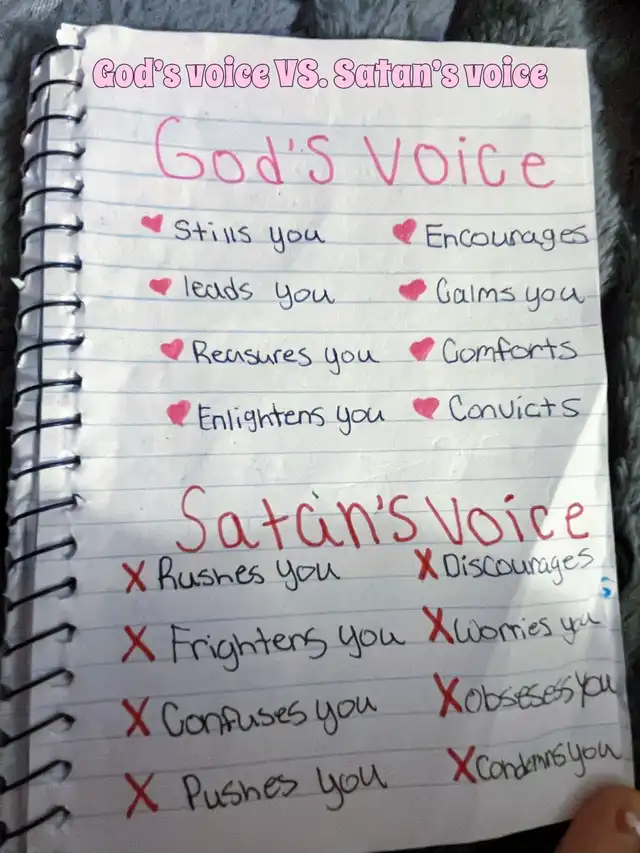 God's voice VS. Satan's voice
God's voice
Stills you
Encourages
leads you
Calms you
Reasures you
Comforts
Enlightens you
Convicts
Satan's voice
Rushes you
Discourages
Frightens you
Worries you
Confuses you
Obseses you
Pushes you
Condemns you